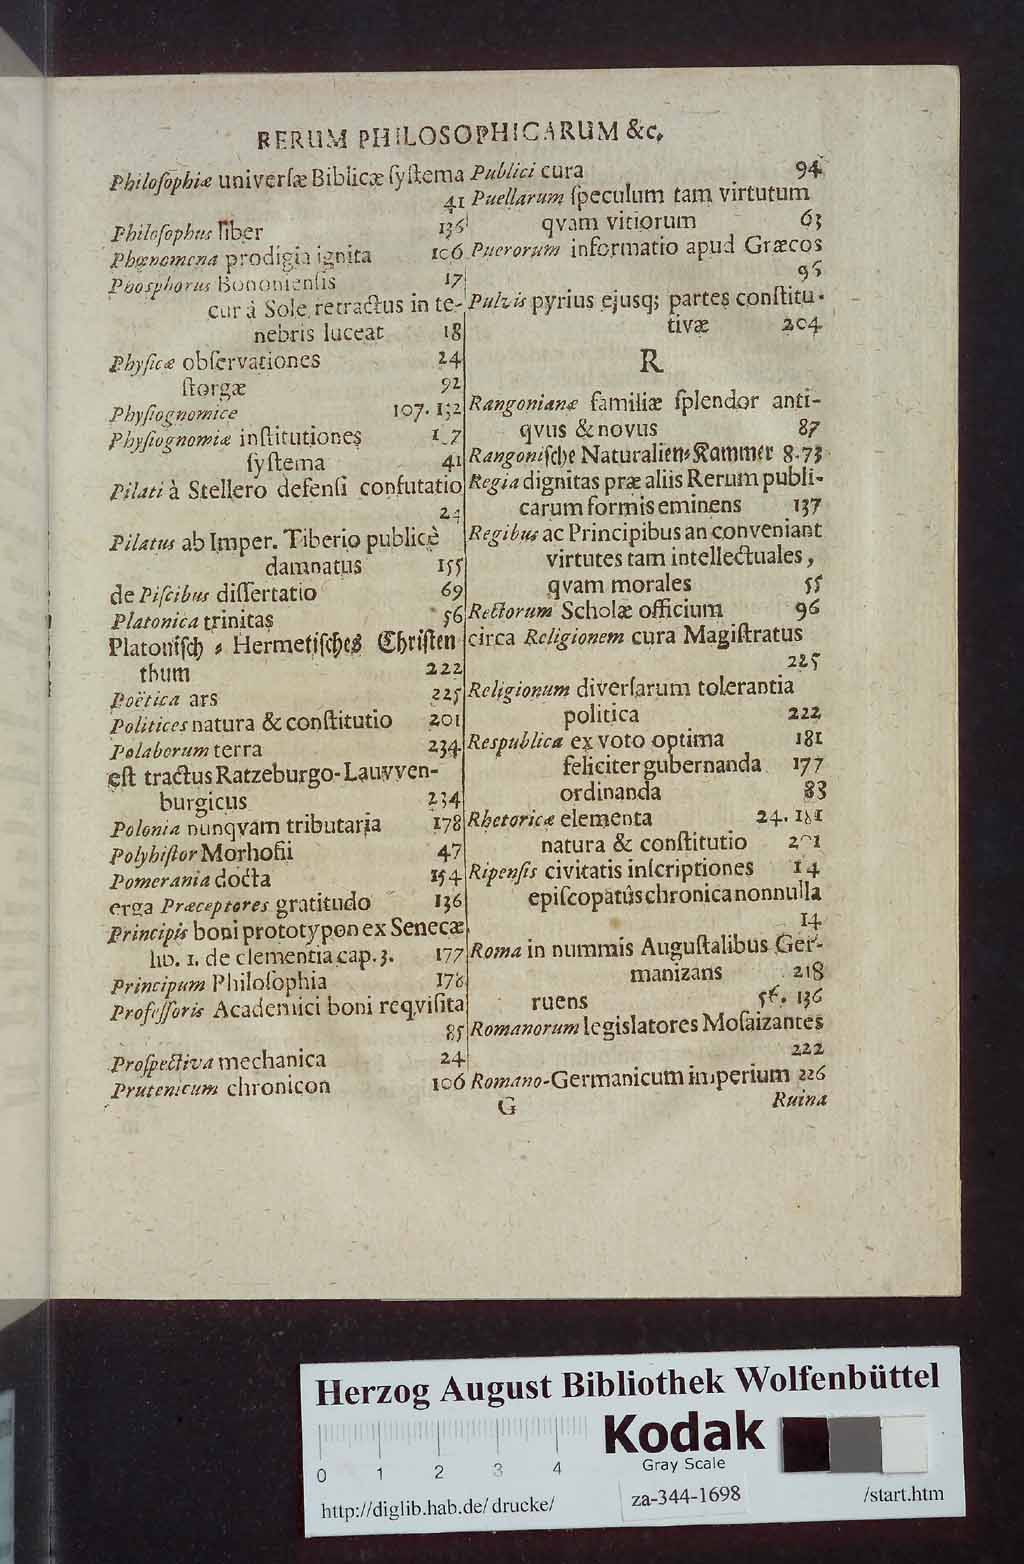 RERUM PHILOSOPHICARUM &c.
Philoſophiæ univerſæ Biblicæ ſyſtema
41
Philoſophus liber 136
Phœnomena prodigia ignita 106
Phosphorus Bononienſis 17
cur à Sole retractus in te-
nebris luceat 18
Phyſicæ obſervationes 24
ſtorgæ 92
Phyſiognomice 107. 132
Phyſiognomiæ inſtitutiones
ſyſtema 41
Pilati à Stellero defenſi confutatio
24
Pilatus ab Imper. Tiberio publicè
damnatus 155
de Piſcibus diſſertatio 69
Platonica trinitas 56
Platoniſch⸗Hermetiſches Chriſten
thum 222
Poëtica ars 225
Politices natura & conſtitutio 201
Polaborum terra 234
eſt tractus Ratzeburgo-Lauvven-
burgicus 234
Polonia nunqvam tributaria 178
Polyhiſtor Morhofii 47
Pomerania docta 154
erga Præceptores gratitudo 136
Principis boni prototypon ex Senecæ
lib. 1. de clementia cap. 3. 177
Principum Philoſophia 178
Profeſſoris Academici boni reqviſita
85
Proſpectiva mechanica 24
Prutenicum chronicon 106
Publici cura 94
Puellarum ſpeculum tam virtutum
qvam vitiorum 63
Puerorum informatio apud Græcos
96
Pulvis pyrius ejusq; partes conſtitu-
tivæ 204
R
Rangonianæ familiæ ſplendor anti-
qvus & novus 87
Rangoniſche Naturalien⸗Kammer 8. 73
Regia dignitas præ aliis Rerum publi-
carum formis eminens 137
Regibus ac Principibus an conveniant
virtutes tam intellectuales,
qvam morales 55
Rectorum Scholæ officium 96
circa Religionem cura Magiſtratus
225
Religionum diverſarum tolerantia
politica 222
Respublica ex voto optima 181
feliciter gubernanda 177
ordinanda 83
Rhetoricæ elementa 24. 181
natura & conſtitutio 201
Ripenſis civitatis inſcriptiones 14
epiſcopatûs chronica nonnulla
14
Roma in nummis Auguſtalibus Ger-
manizans 218
ruens 56. 136
Romanorum legislatores Moſaizantes
222
Romano-Germanicum imperium 226
G Ruina
Herzog August Bibliothek Wolfenbüttel
0 1 2 3 4
Kodak
Gray Scale
http://diglib.hab.de/drucke/ za-344-1698 /start.htm